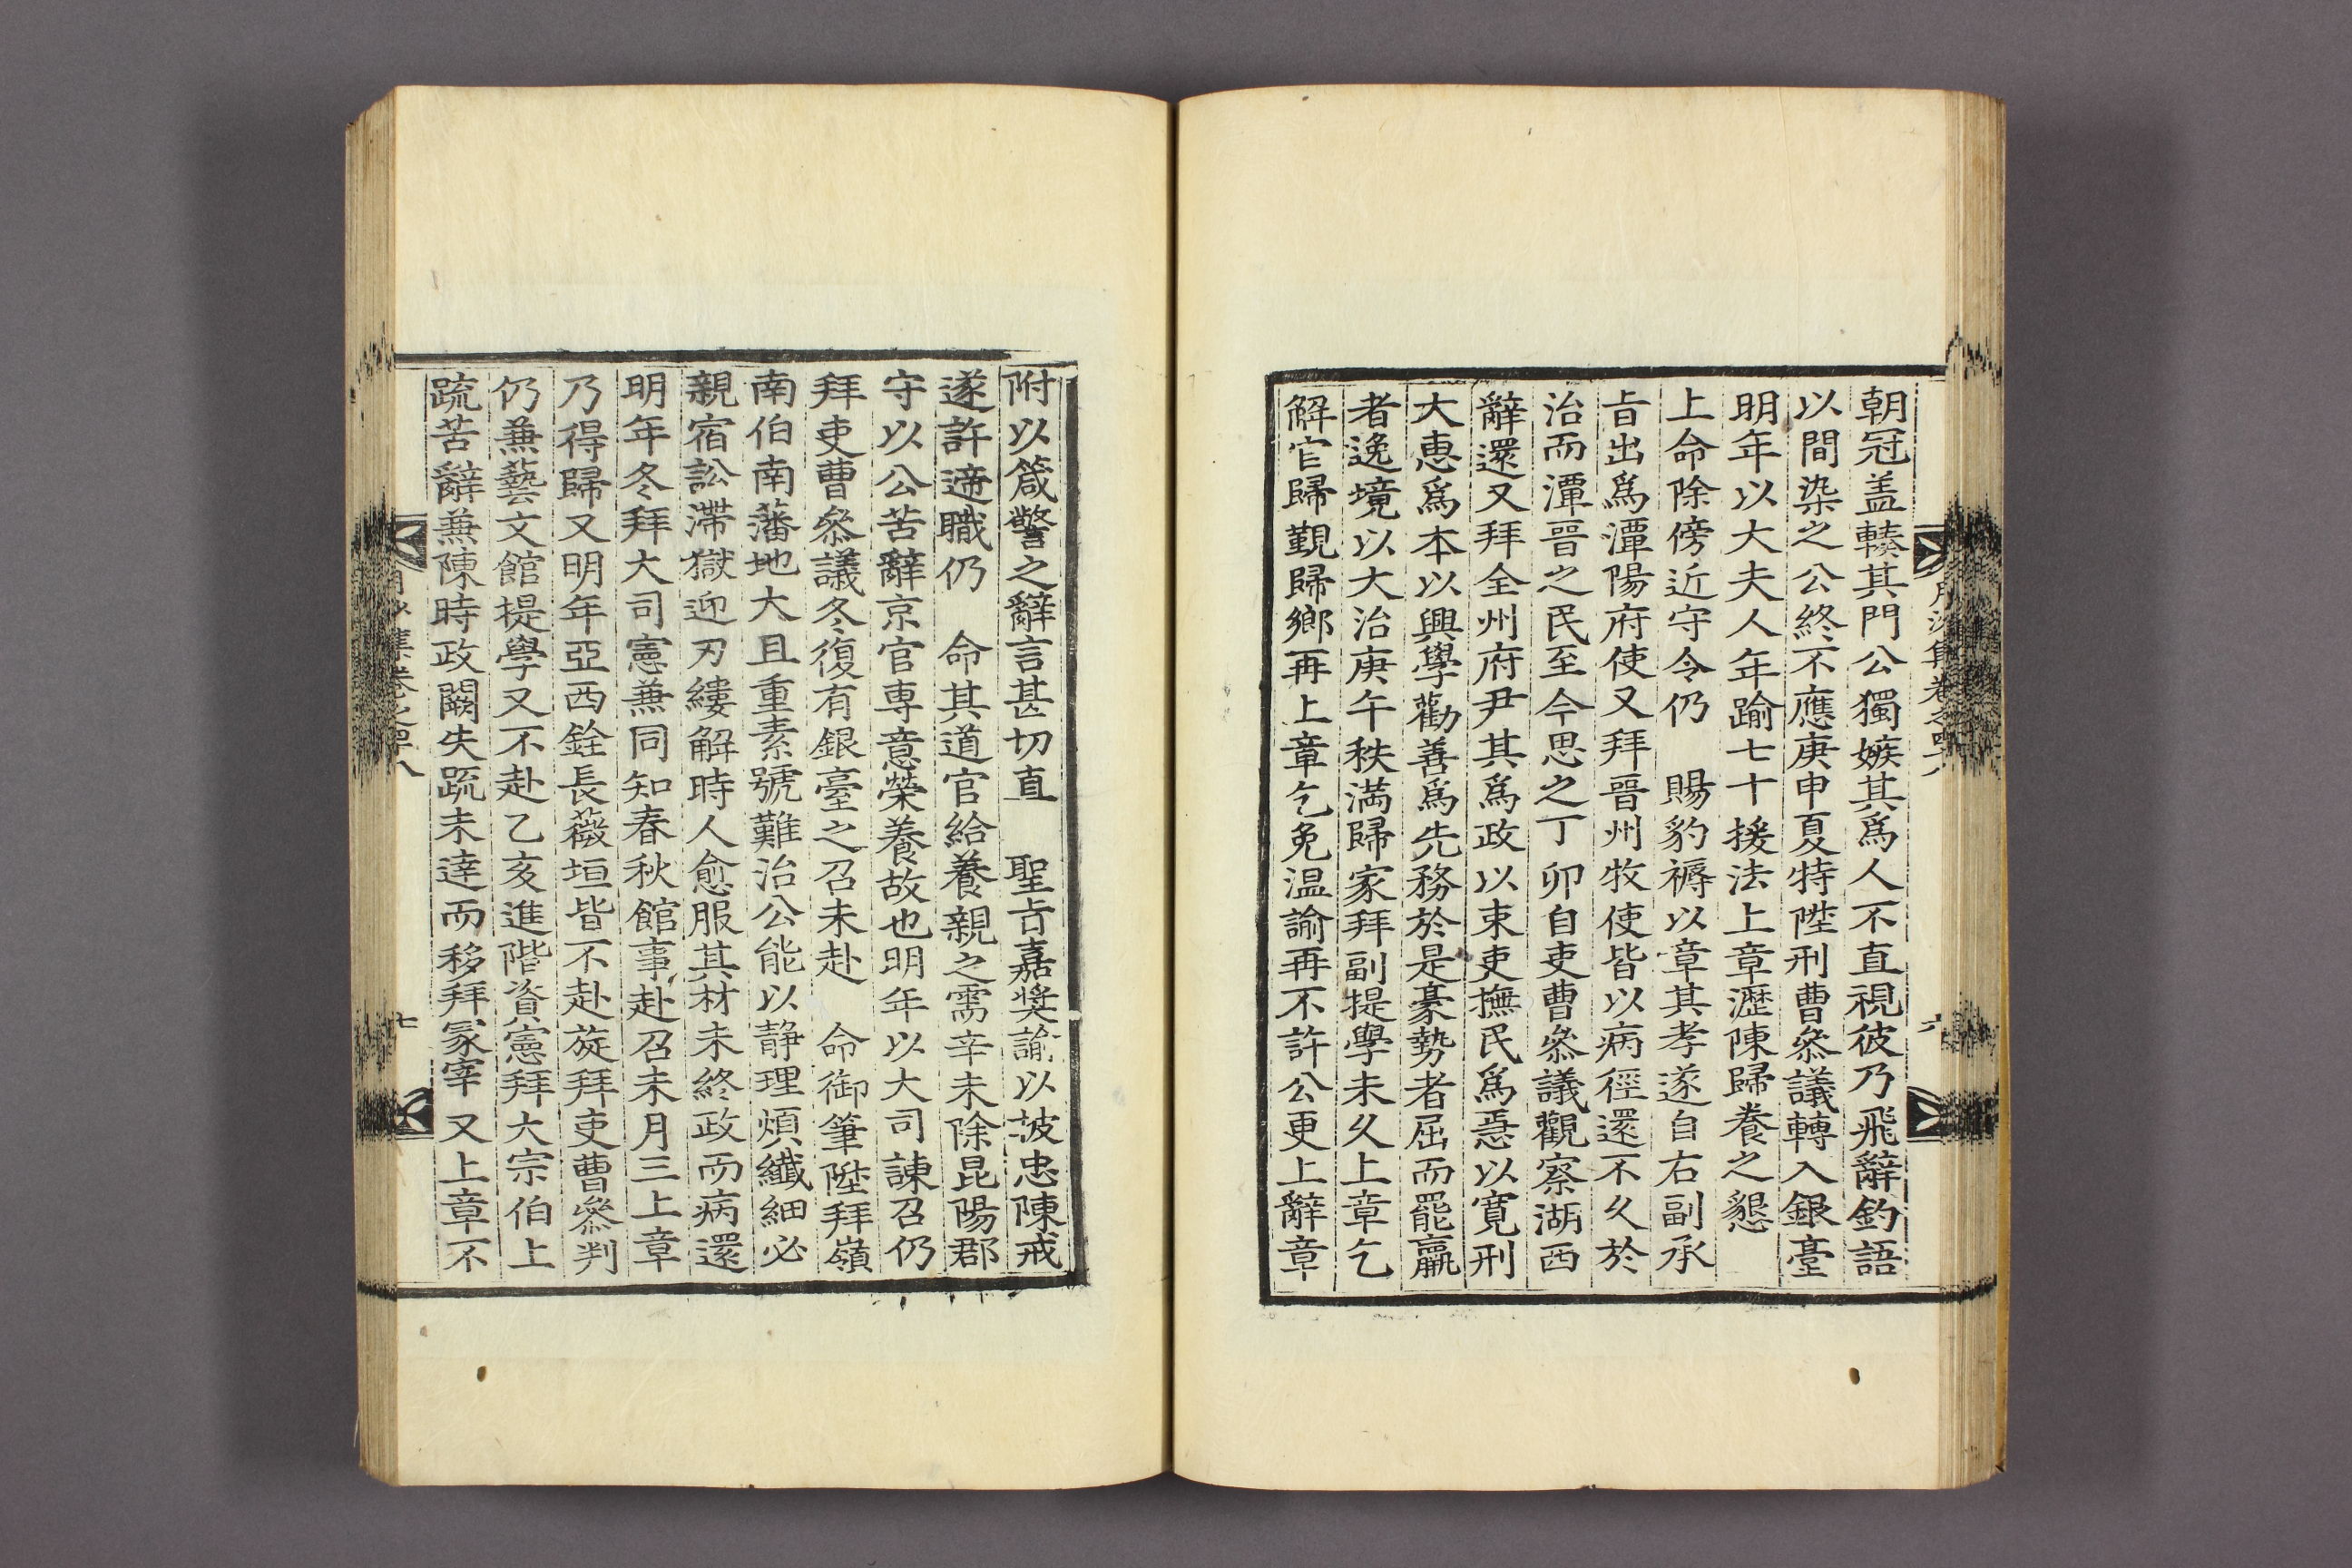 朝冠盖輳其門公獨嫉其爲人不直視彼乃飛辭釣語
以間染之公終不應庚申夏特陞刑曹叅議轉入銀臺
明年以大夫人年踰七十援法上章瀝陳歸養之懇
上命除傍近守令仍 賜豹褥以章其孝遂自右副承
㫖出爲潭陽府使又拜晉州牧使皆以病徑還不久於
治而潭晉之民至今思之丁卯自吏曹叅議觀察湖西
辭還又拜全州府尹其爲政以束吏撫民爲惪以寬刑
大惠爲本以興學勸善爲先務於是豪勢者屈而罷羸
者逸境以大治庚午秩満歸家拜副提學未久上章乞
解官歸覲歸鄉再上章乞免温諭再不許公更上辭章
附以箴警之辭言甚切直 聖㫖嘉奬諭以披忠陳戒
遂許遞職仍 命其道官給養親之需辛未除昆陽郡
守以公苦辭京官専意榮養故也明年以大司諫召仍
拜吏曹叅議冬復有銀臺之召未赴 命御筆陞拜嶺
南伯南藩地大且重素號難治公能以静理煩纎細必
親宿訟滯獄迎刃縷解時人愈服其材未終政而病還
明年冬拜大司憲兼同知春秋館事赴召未月三上章
乃得歸又明年亞西銓長薇垣皆不赴旋拜吏曹叅判
仍兼藝文館提學又不赴乙亥進階資憲拜大宗伯上
疏苦辭兼陳時政闕失疏未達而移拜冢宰又上章不
七